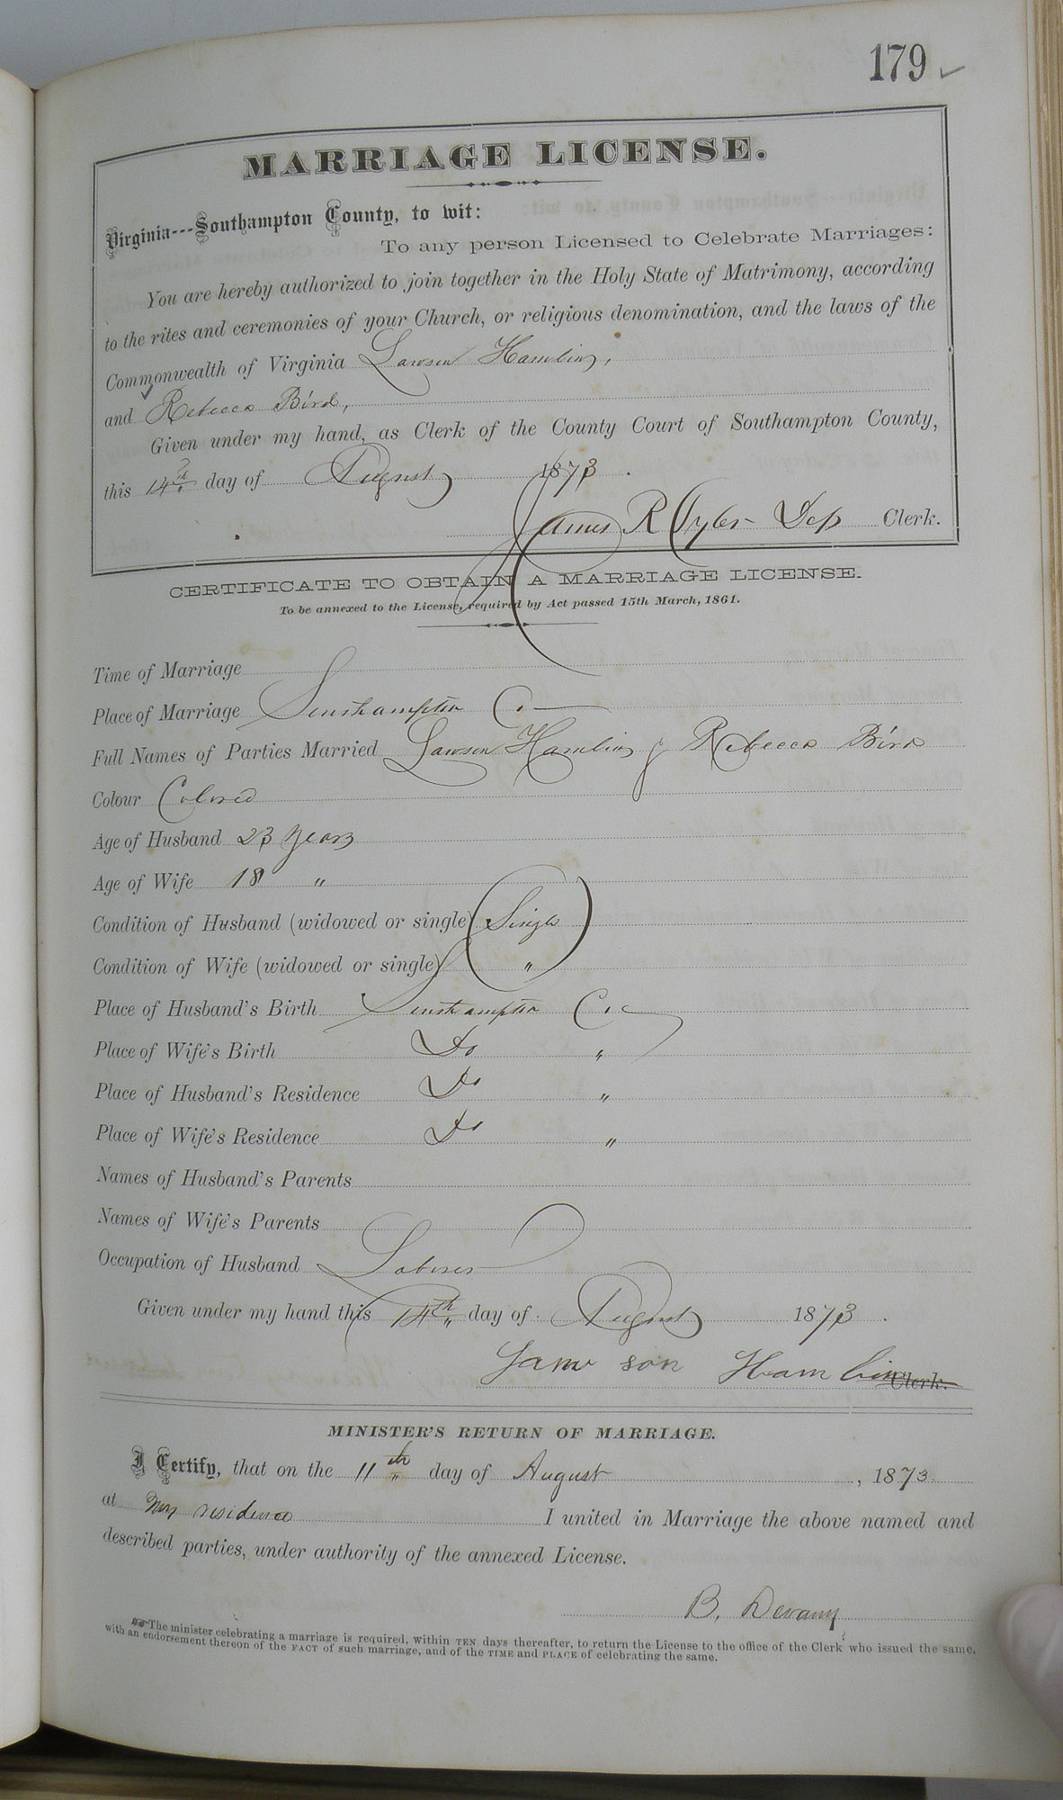 179 ✓
MARRIAGE LICENSE.
Virginia---Southampton County, to wit:
To any person Licensed to Celebrate Marriages:
You are hereby authorized to join together in the Holy State of Matrimony, according
to the rites and ceremonies of your Church, or religious denomination, and the laws of the
Commonwealth of Virginia Lawson Hamlin,
and Rebecca Bird,
Given under my hand, as Clerk of the County Court of Southampton County,
this 14th day of August 1873.
James R Tyler Dep Clerk.
CERTIFICATE TO OBTAIN A MARRIAGE LICENSE.
To be annexed to the License, required by Act passed 15th March, 1861.
Time of Marriage
Place of Marriage Southampton Co.
Full Names of Parties Married Lawson Hamlin & Rebecca Bird
Colour Colored
Age of Husband 23 years
Age of Wife 18 "
Condition of Husband (widowed or single) Single
Condition of Wife (widowed or single) "
Place of Husband's Birth Southampton Co.
Place of Wife's Birth Do "
Place of Husband's Residence Do "
Place of Wife's Residence Do "
Names of Husband's Parents
Names of Wife's Parents
Occupation of Husband Laborer
Given under my hand this 14th day of August 1873.
Hamlin Clerk.
MINISTER'S RETURN OF MARRIAGE.
I Certify, that on the 11th day of August, 1873
at my residence I united in Marriage the above named and
described parties, under authority of the annexed License.
B. Devany
The minister celebrating a marriage is required, within TEN days thereafter, to return the License to the office of the Clerk who issued the same,
with an endorsement thereon of the FACT of such marriage, and of the TIME and PLACE of celebrating the same.